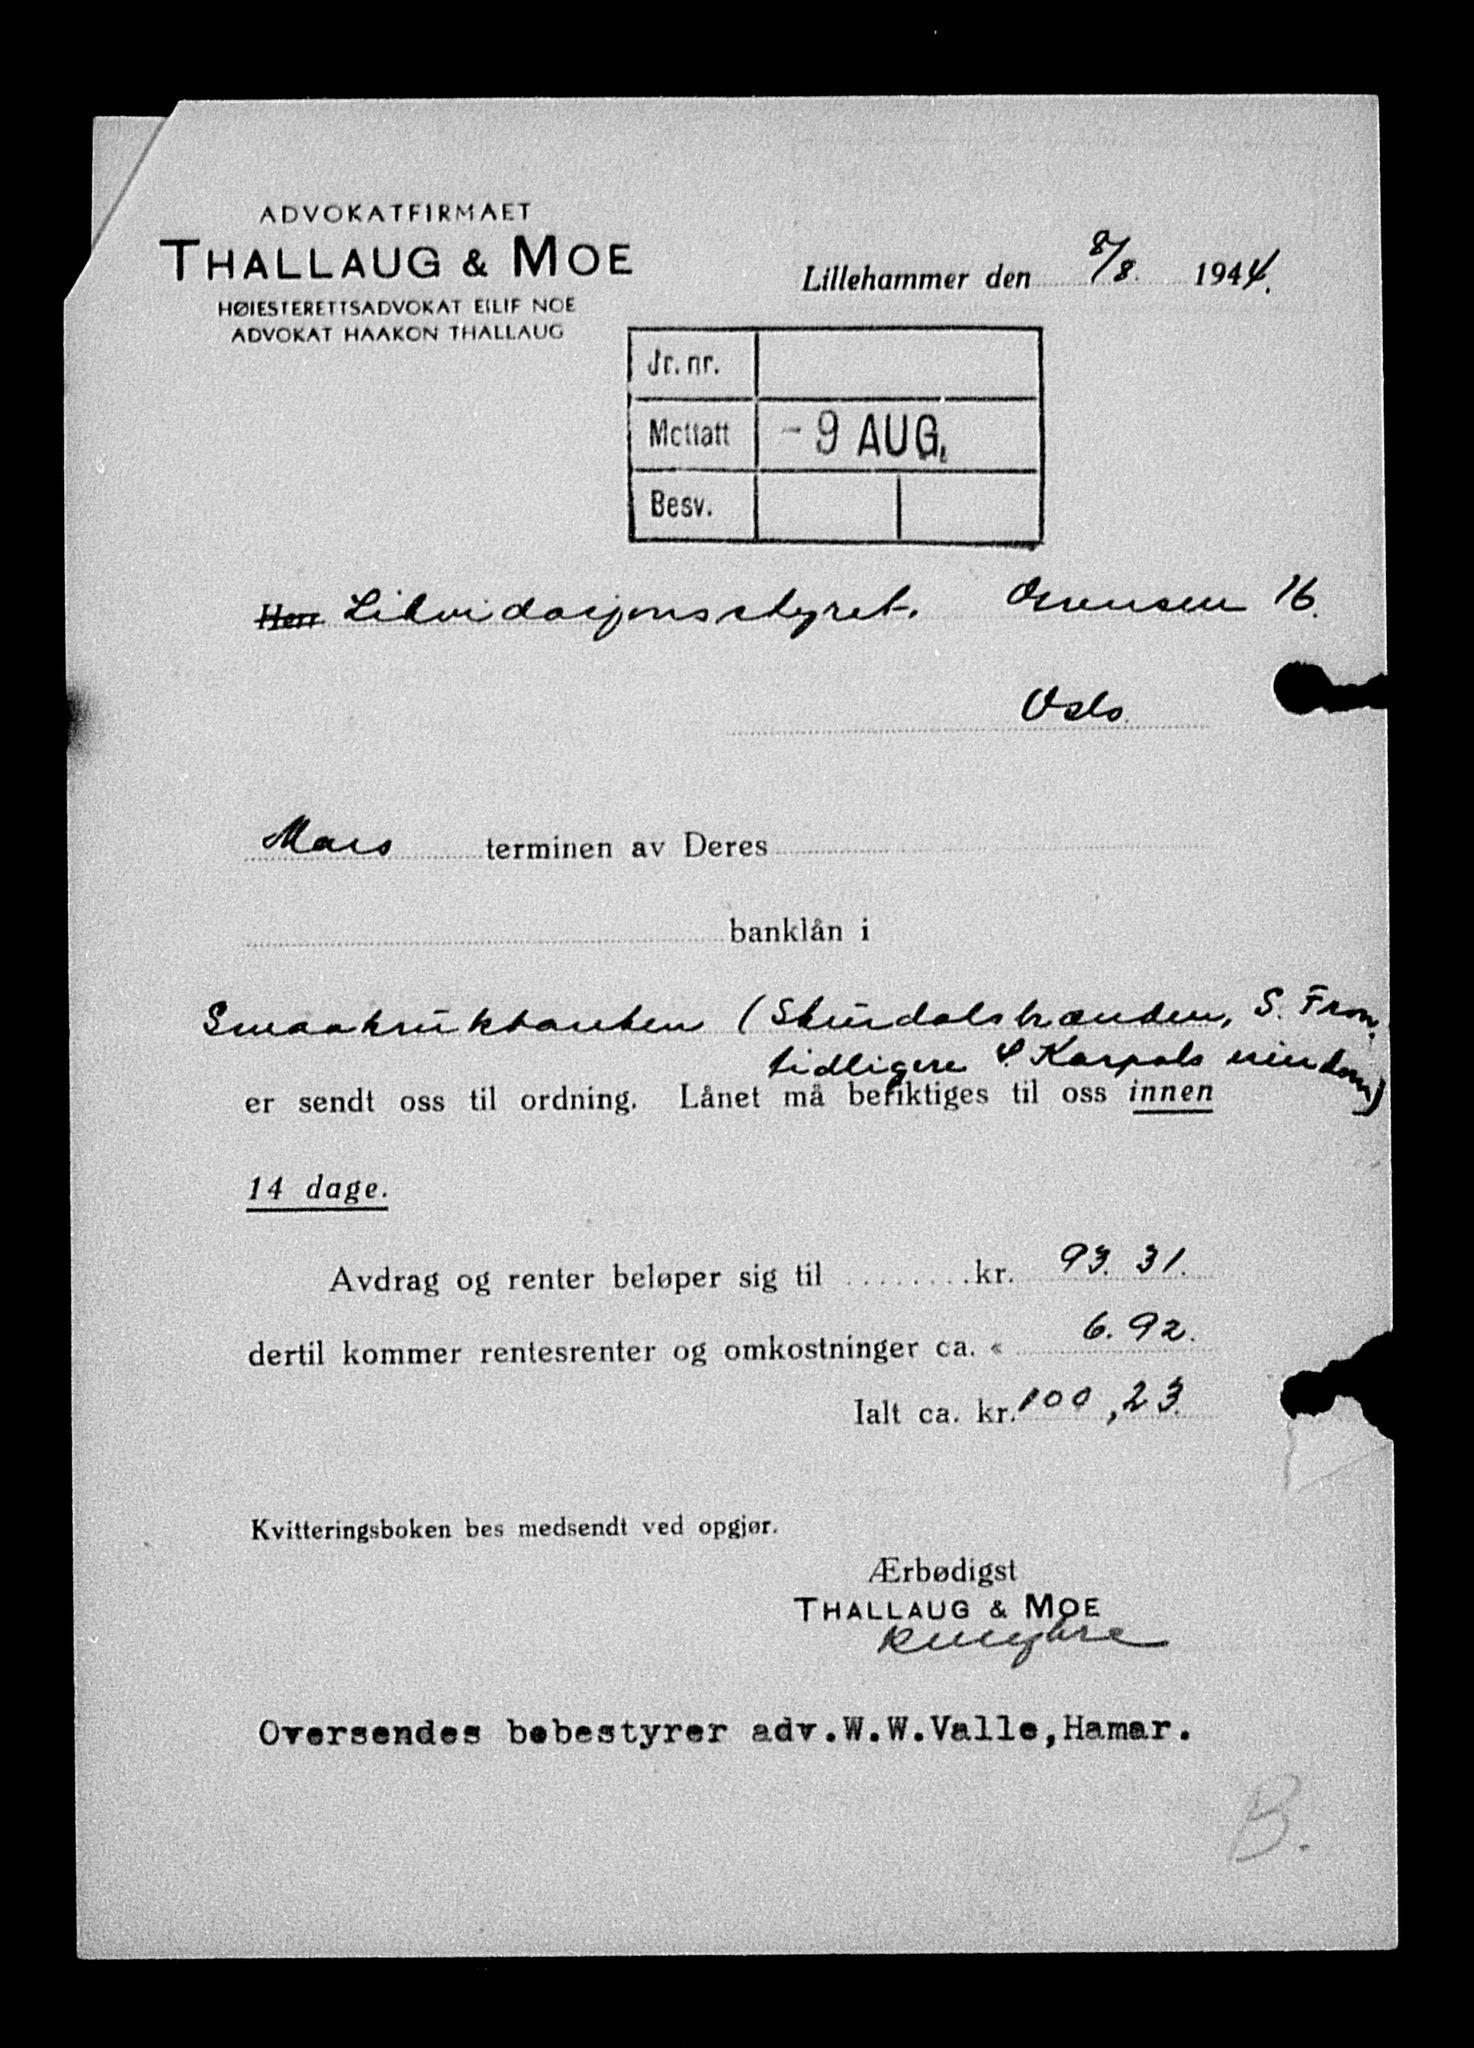 ADVOKATFIRMAET
THALLAUG & MOE
HØIESTERETTSADVOKAT EILIF MOE
ADVOKAT HAAKON THALLAUG
Lillehammer den 8/8. 1944.
Jr. nr.
Mottatt - 9 AUG.
Besv.
Herr Likvidasjonsstyret. 16.
Oslo.
Mars terminen av Deres
banklån i
Smaabrukbanken (Skurdalstranden, S. Fron,
tidligere Karpols eiendom)
er sendt oss til ordning. Lånet må beriktiges til oss innen
14 dage.
Avdrag og renter beløper sig til ........kr. 93.31.
dertil kommer rentesrenter og omkostninger ca. « 6.92.
Ialt ca. kr. 100,23.
Kvitteringsboken bes medsendt ved opgjør.
Ærbødigst
THALLAUG & MOE
Oversendes bobestyrer adv.W.W.Valle,Hamar.
B.